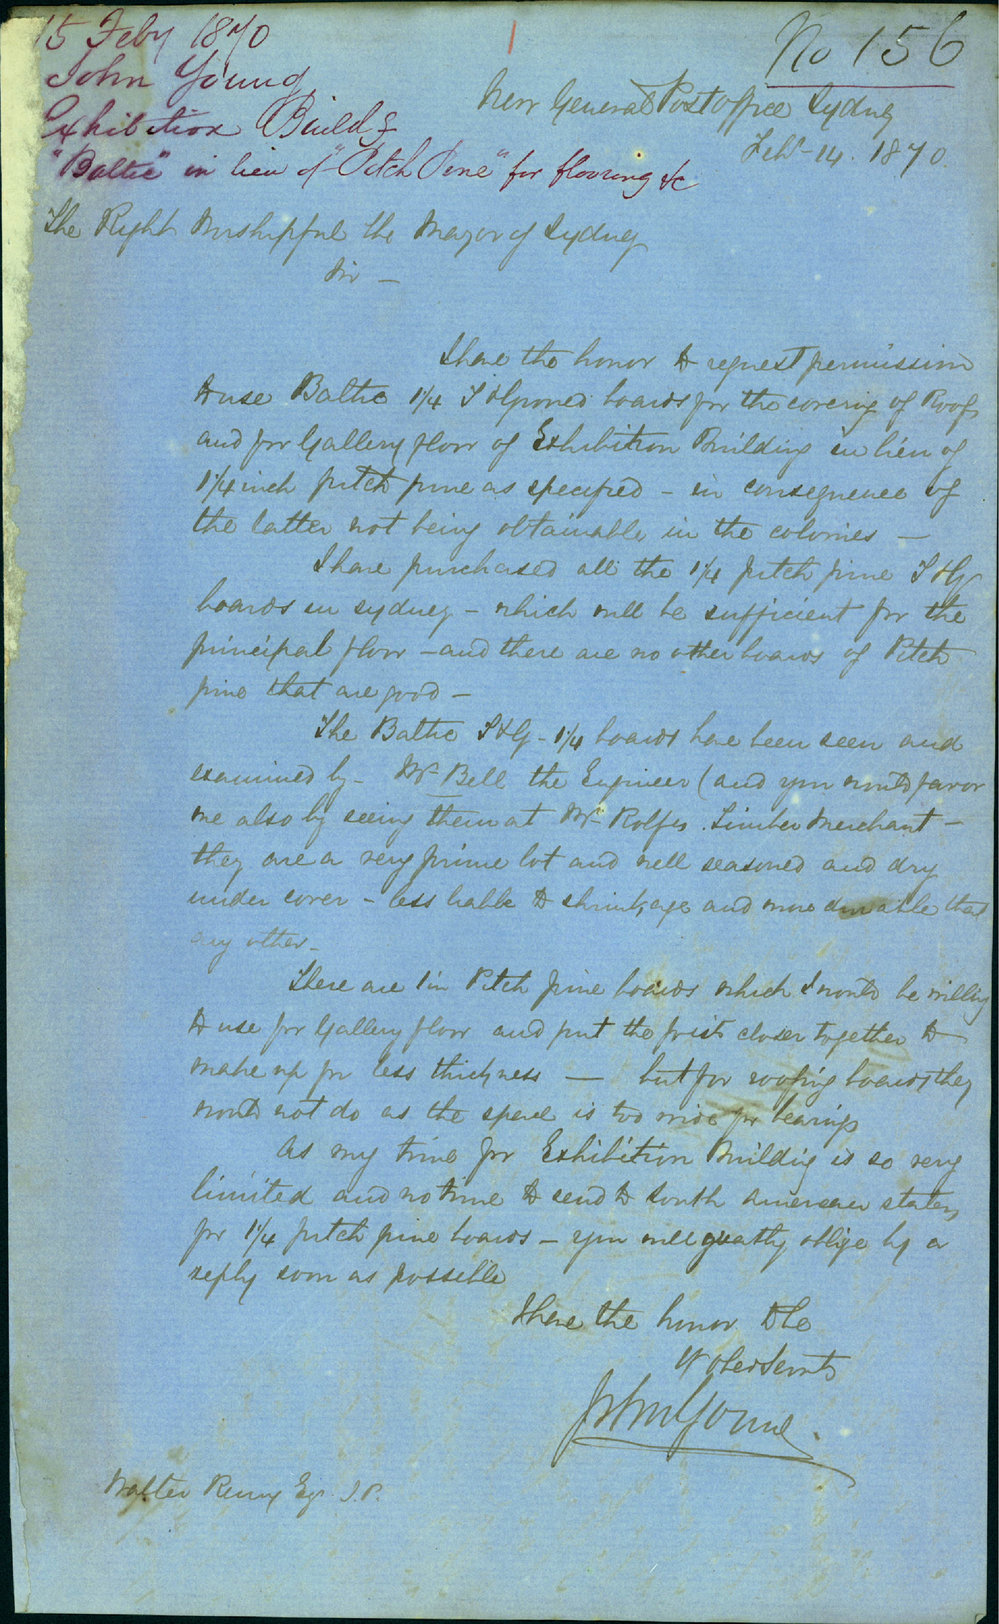 15 Feby 1870
John Young
Exhibition Buildg
"Baltic" in lieu of "Pitch Pine" for flooring &c
No 156
New General Post Office Sydney
Feby 14. 1870
The Right Worshipful the Mayor of Sydney
Sir —
I have the honor to request permission
to use Baltic 1¼ T & Grooved boards for the covering of Roofs
and for Gallery floor of Exhibition Building in lieu of
1¼ inch pitch pine as specified - in consequence of
the latter not being obtainable in the colonies —
I have purchased all the 1¼ pitch pine T & G
boards in Sydney - which will be sufficient for the
principal floor - and there are no other boards of Pitch
pine that are good —
The Baltic T & G - 1¼ boards have been seen and
examined by - Mr Bell the Engineer (and you would favor
me also by seeing them at Mr Rolfes Timber Merchant —
they are a very prime lot and well seasoned and dry
under cover - less liable to shrinkage and more durable than
any other -
There are 1 in Pitch pine boards which I would be willing
to use for Gallery floor and put the joists closer together to
make up for less thickness — but for roofing boards they
would not do as the space is too wide for bearings
As my time for Exhibition Building is so very
limited and no time to send to South American states
for 1¼ pitch pine boards - you will greatly oblige by a
reply soon as possible
I have the honor to be
Yr Obed Servt
John Young.
Walter Renny Esq J.P.